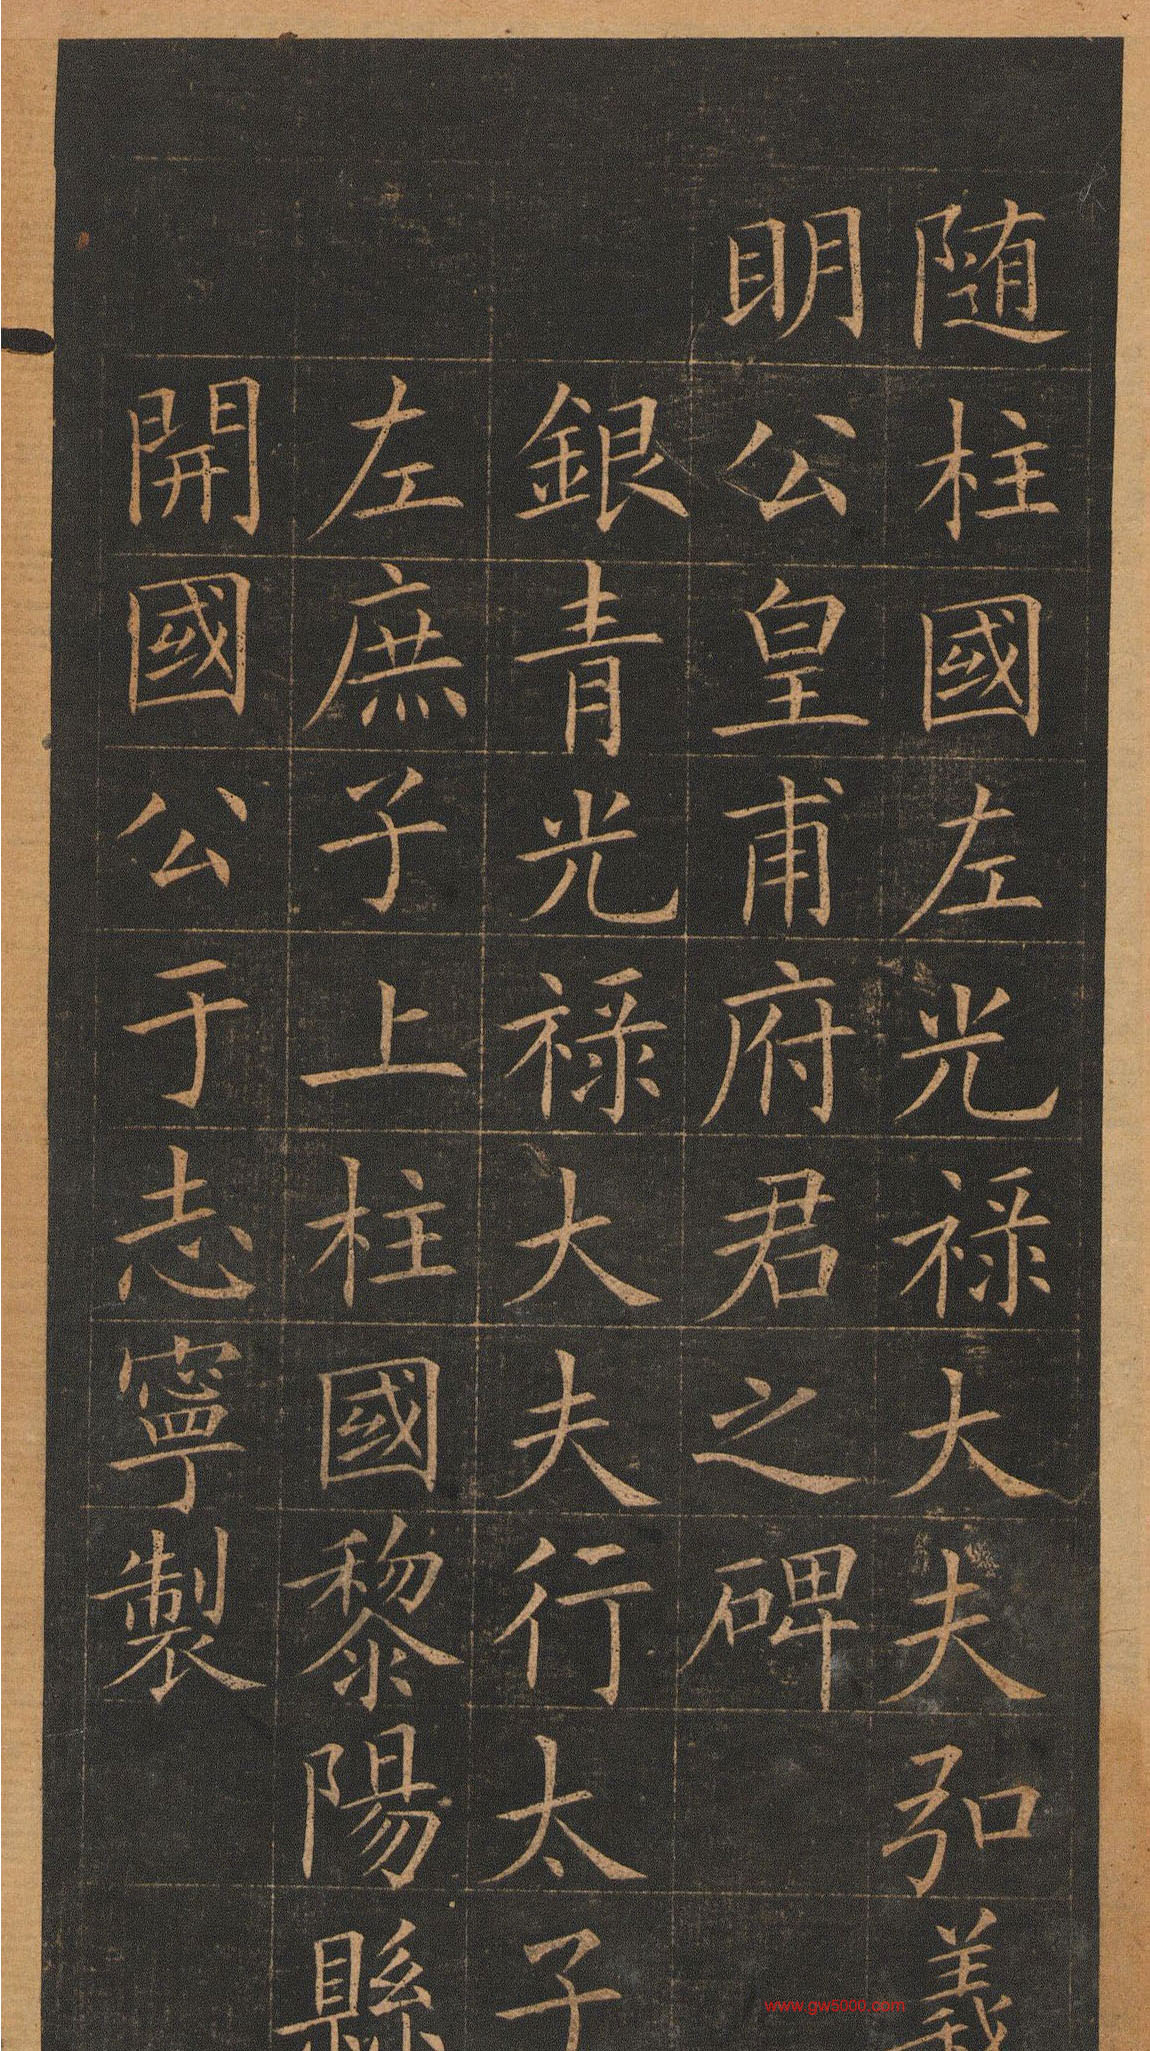 随柱國左光禄大夫弘義
明公皇甫府君之碑
銀青光禄大夫行太子
左庶子上柱國黎陽縣
開國公于志寧製
www.gw5000.com